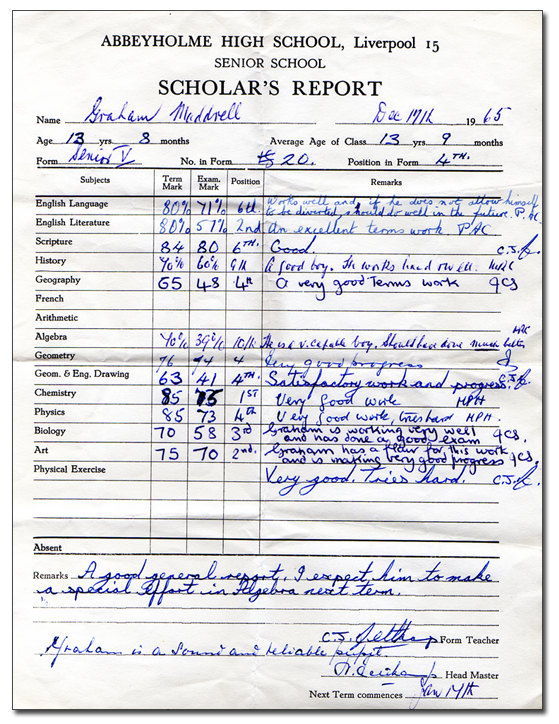 ABBEYHOLME HIGH SCHOOL, Liverpool 15
SENIOR SCHOOL
SCHOLAR'S REPORT
Name Graham Maddrell Dec 17th 1965
Age 13 yrs. 8 months Average Age of Class 13 yrs. 9 months
Form Senior V No. in Form 20. Position in Form 4TH.
Subjects Term Mark Exam. Mark Position Remarks
English Language 80% 71% 6th Works well and, if he does not allow himself
to be diverted, should do well in the future. P.AC
English Literature 80% 57% 2nd An excellent terms work PAC
Scripture 84 80 6TH. Good. C.J.
History 70% 60% 9th A good boy. He works hard & well.
Geography 65 48 4th A very good terms work JCS
French
Arithmetic
Algebra 40% 39% 10th He is a v. capable boy. Should have done much better
Geometry 76 74 4 Very good progress
Geom. & Eng. Drawing 63 41 4TH. Satisfactory work and progress.
Chemistry 85 75 1ST Very Good work MPH
Physics 85 73 4th Very good work, tries hard MPH.
Biology 70 58 3rd Graham is working very well
and has done a good exam JCS.
Art 75 70 2nd. Graham has a flair for this work
and is making very good progress JCS.
Physical Exercise Very good. Tries hard. C.J.
Absent
Remarks A good general report. I expect him to make
a special effort in Algebra next term.
C.J. Form Teacher
Graham is a sound and reliable pupil.
Head Master
Next Term commences Jan 17th